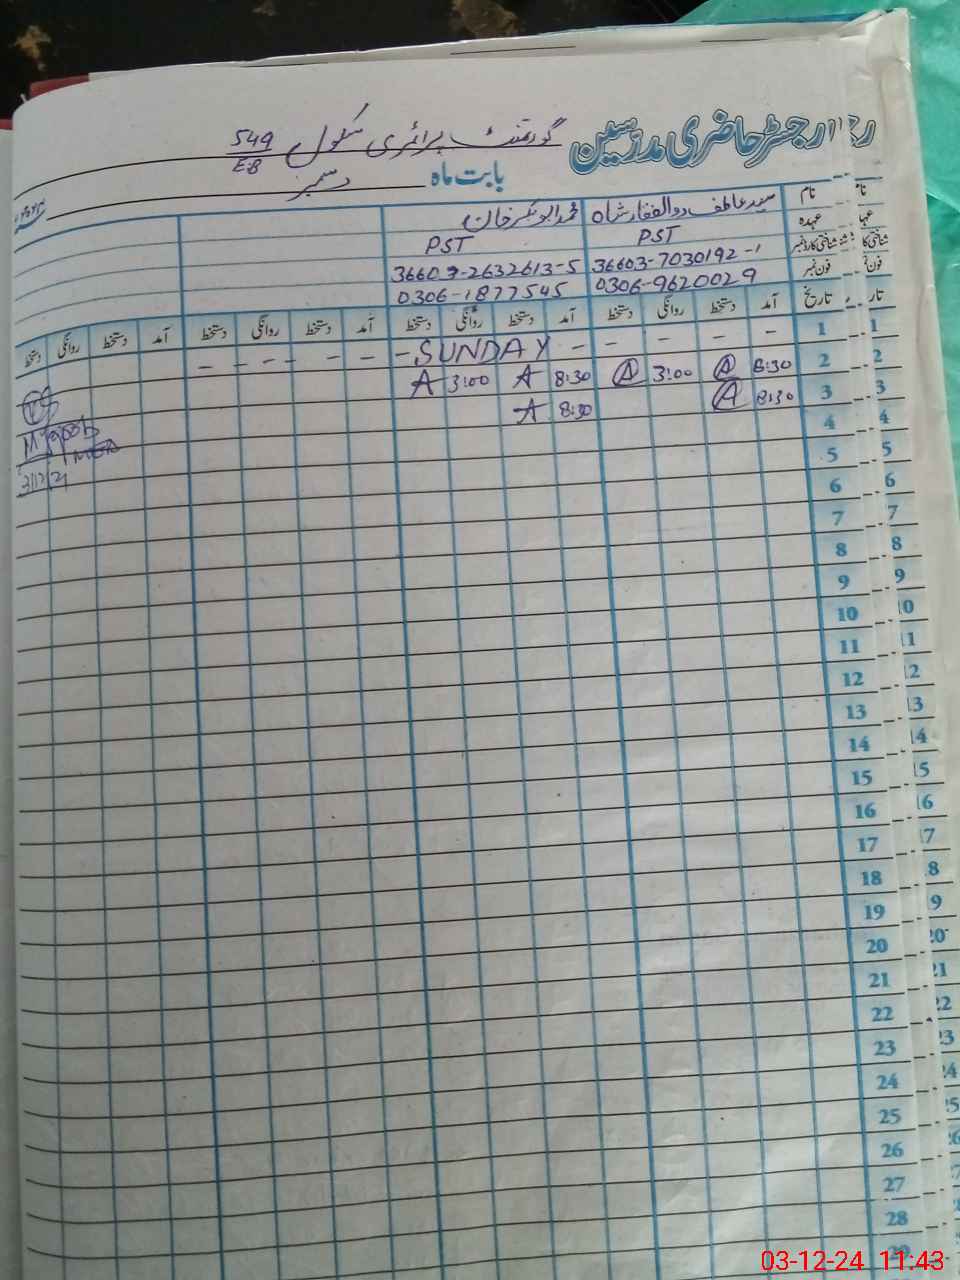 رجسٹر حاضری مدرسین گورنمنٹ پرائمری سکول 549/EB
بابت ماہ دسمبر
نام سید عاطف ذوالفقار شاہ محمد ابوبکر خان
عہدہ PST PST
شناختی کارڈ نمبر 36603-7030192-1 36603-2632613-5
فون نمبر 0306-9620029 0306-1877545
تاریخ آمد دستخط روانگی دستخط آمد دستخط روانگی دستخط آمد دستخط روانگی دستخط آمد دستخط روانگی دستخط
1 - - - - - SUNDAY - - - - - -
2 8:30 A 3:00 A 8:30 A 3:00 A
3 8:30 A 8:30 A
4
5
6
7
8
9
10
11
12
13
14
15
16
17
18
19
20
21
22
23
24
25
26
27
28
29
03-12-24 11:43